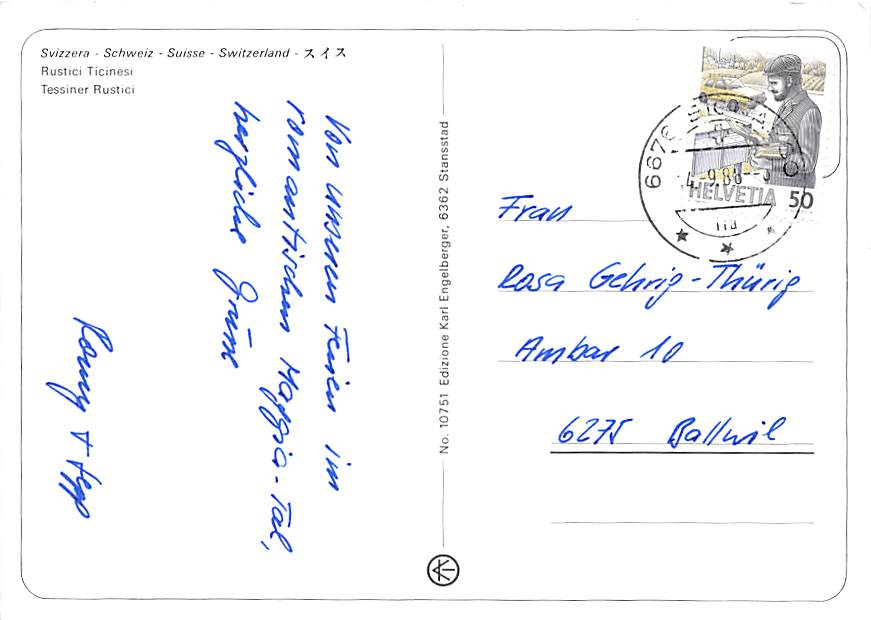 Svizzera - Schweiz - Suisse - Switzerland - スイス
Rustici Ticinesi
Tessiner Rustici
Von unseren Ferien im
romantischen Maggia-Tal,
herzliche Grüsse
Romy + Sepp
No. 10751 Edizione Karl Engelberger, 6362 Stansstad
HELVETIA 50
6676
Frau
Rosa Gehrig-Thürig
Ambar 10
6275 Ballwil